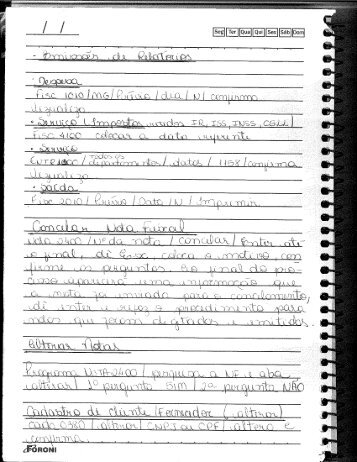 / /
Seg Ter Qua Qui Sex Sáb Dom
• Emissões de Relatórios
• Despesa
Fisc 1010/MG/Prévio/dia/N/confirma
visualiza
• Serviço / Impostos IR, ISS, INSS, CSLL/
Fisc 4100 colocar a data referente
• Serviço
todos os
departamentos/ datas / 1158/confirma
visualiza
• Saída
Fisc 2010/Prévio/Data/N/Imprimir
Cancelar Nota Fiscal
nda 2400 /Nº da nota / cancelar/ Enter até
o final, dê Esc, coloca o motivo con
firme as perguntas. Ao final do pro-
cesso aparecerá uma informação que
a nota foi enviada para o cancelamento,
dê enter e refaz o procedimento para
notas que foram digitadas e emitidas.
Alterar Notas
Programa 2400/ pesquisa a NF e aba
alterar/ 1º pergunta SIM/ 2º pergunta NÃO
Cadastro de cliente/Fornecedor (alterar)
cada 0380/alterar/ CNPJ ou CPF/ altera e
confirma.
FORONI